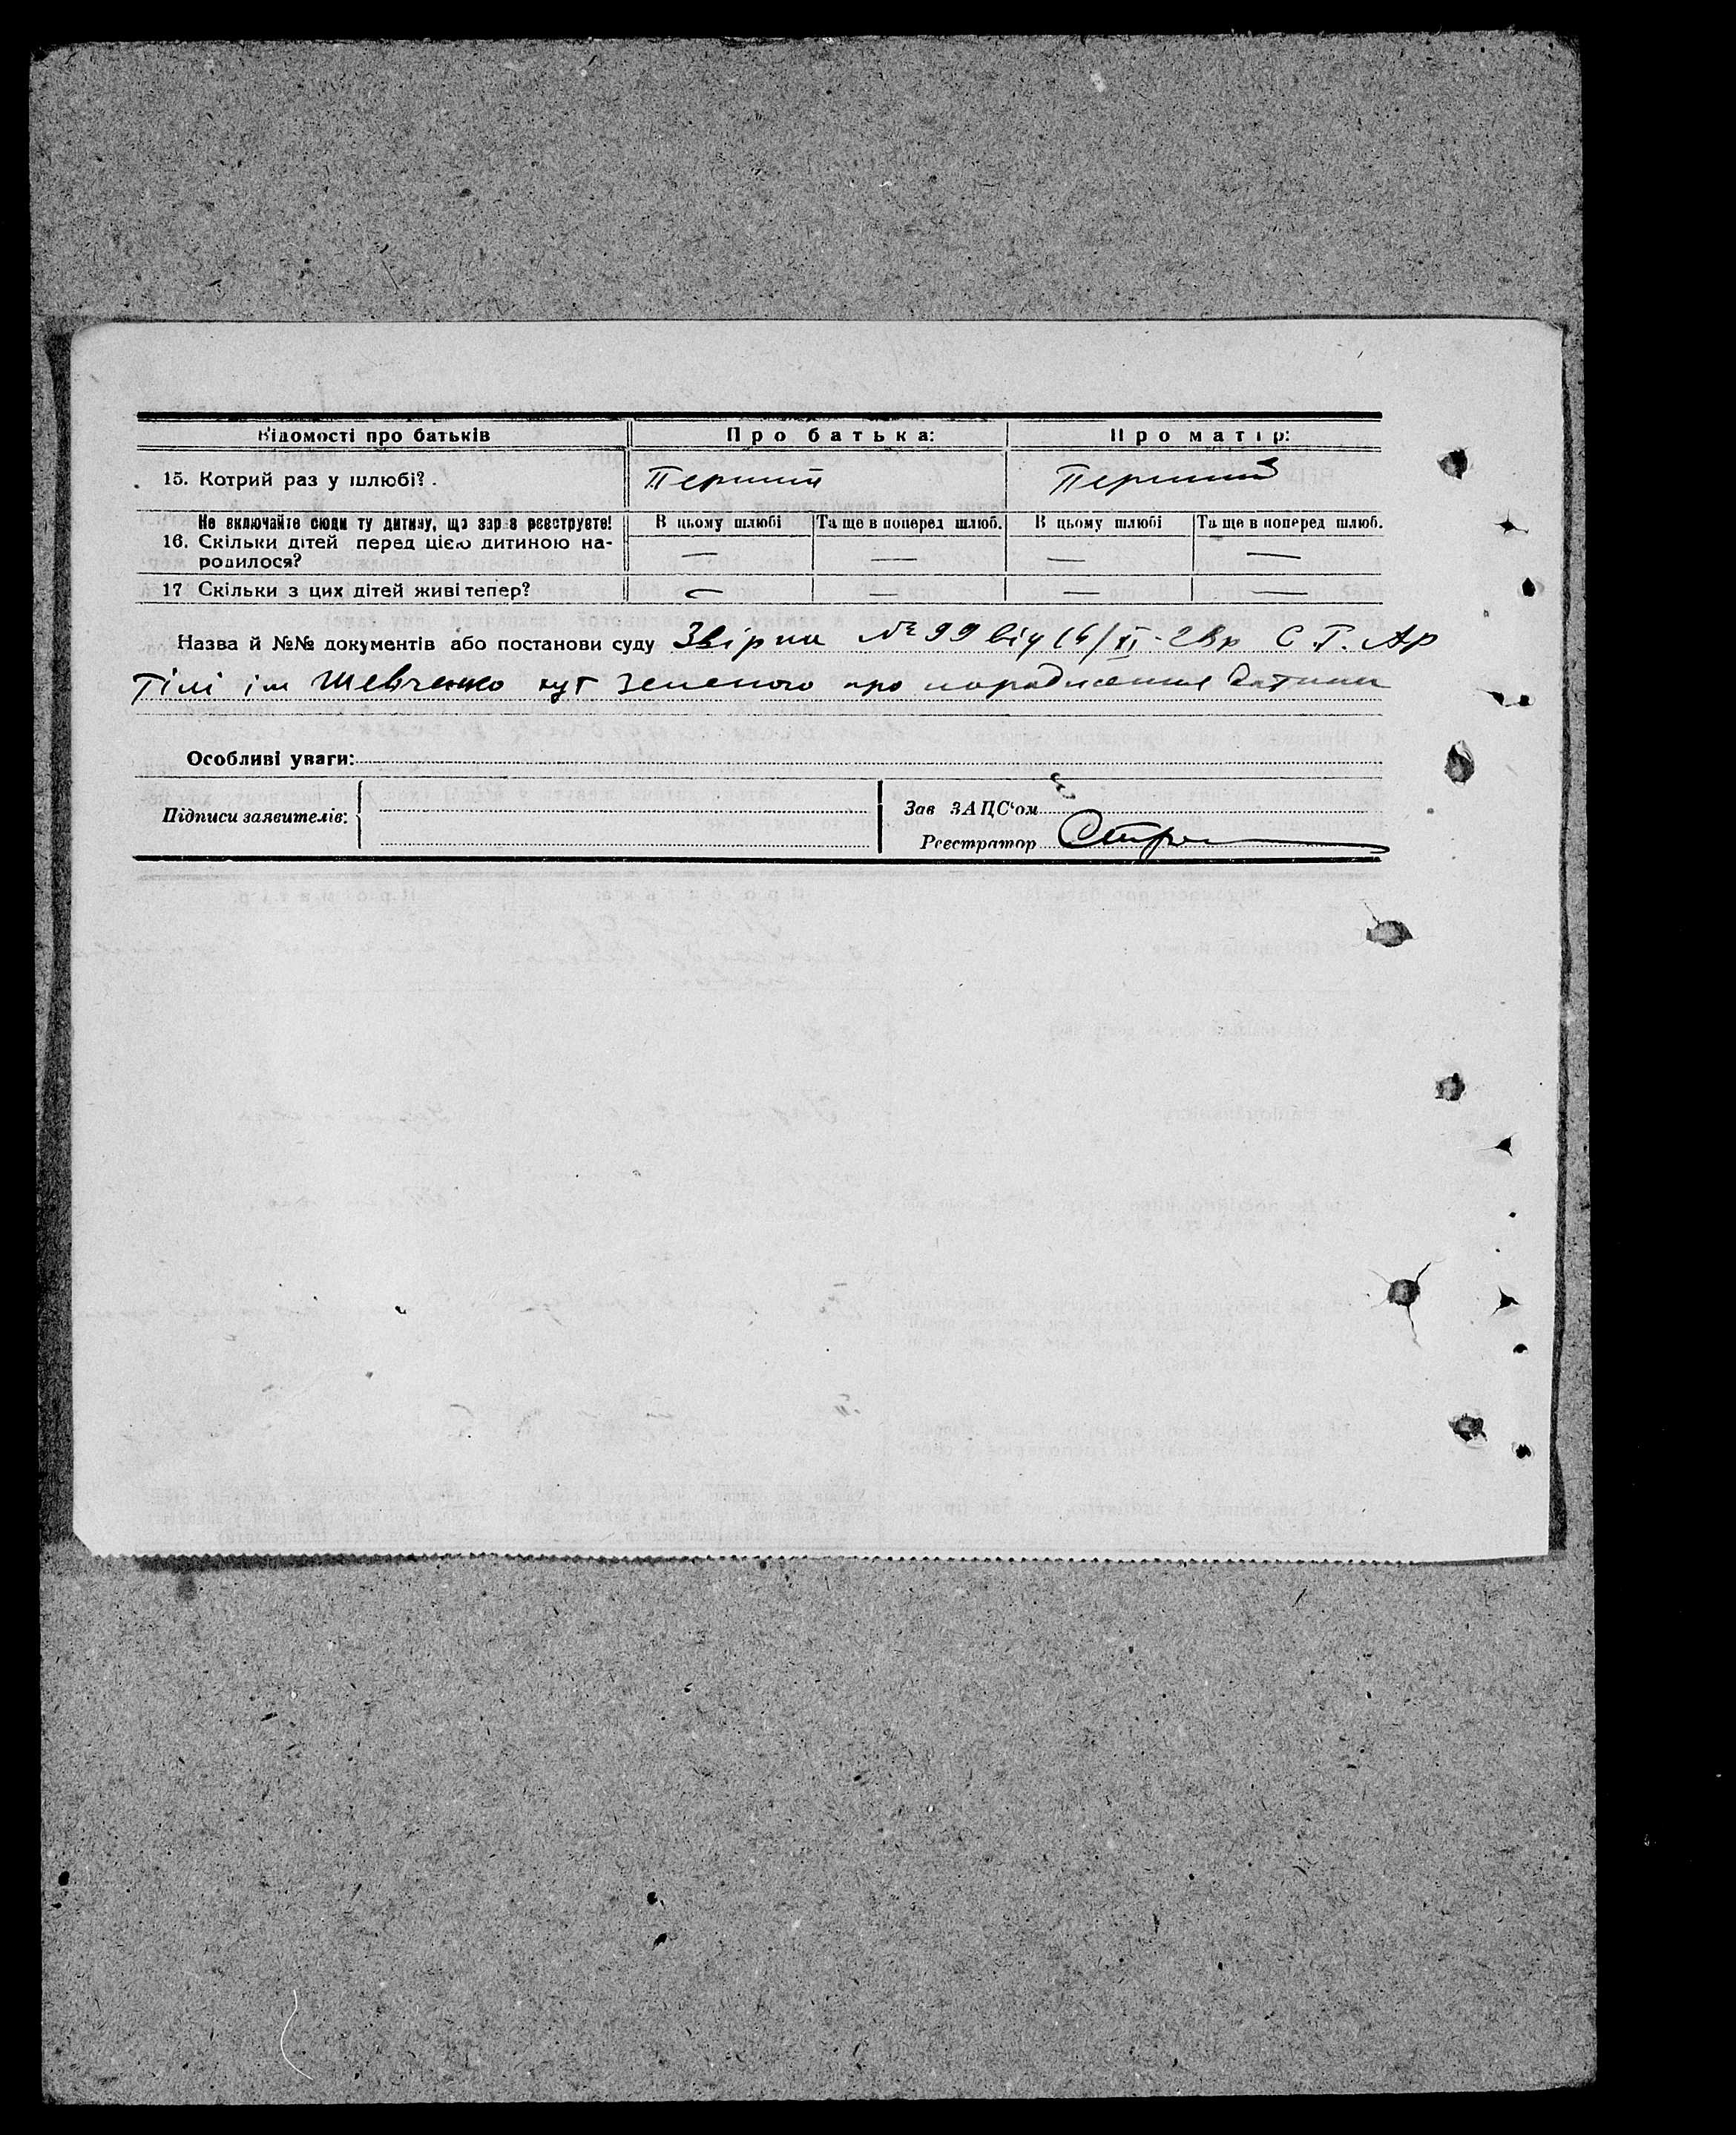 Відомості про батьків Про батька: Про матір:
15. Котрий раз у шлюбі? Перший Перший
Не включайте сюди ту дитину, що зараз реєструєте! В цьому шлюбі Та ще в поперед шлюб. В цьому шлюбі Та ще в поперед шлюб.
16. Скільки дітей перед цією дитиною на- — — — —
родилося?
17 Скільки з цих дітей живі тепер? — — — —
Назва й №№ документів або постанови суду № 99 від XI-28р С.Г. Ар
тілі ім Шевченко хут Зеленого про народження дитини
Особливі уваги:
Підписи заявителів: Зав ЗАЦС'ом
Реєстратор